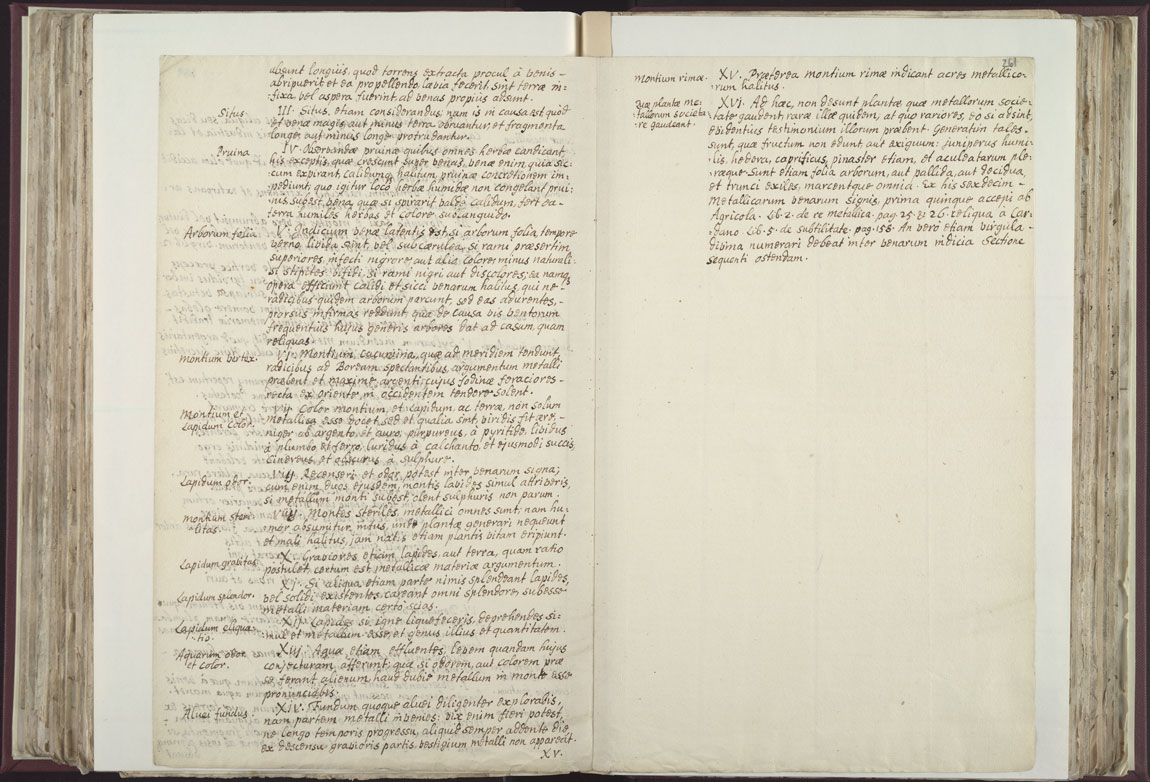 absunt longiùs, quod torrens extracta procul à venis
abripuerit et ea propellendo lævia fecerit. Sint terræ in-
fixa, vel aspera fuerint, ad venas propiùs absunt.
Situs.
III. Situs, etiam considerandus; num is in causa est quòd
et venæ magis aut minus terra obruantur, et fragmenta
longè aut minùs longè protrudantur.
Pruina.
IV. Observandæ pruinæ quibus omnes herbæ candicant
his exceptis, quæ crescunt super venas, venæ enim, quia sic-
cum expirant calidumq. halitum, pruinæ concretionem im-
pediunt, quo igitur loco herbæ humidæ non congelant prui-
nis, subest vena, quæ si spirarit valdè calidum, fert ea
terra humiles herbas et colore sublanguido.
Arborum folia.
V. Indicium venæ latentis est, si arborum folia, tempore
verno, livida sint, vel subcærulea, si rami præsertim
superiores, infecti nigrore, aut alio colore, minus naturali:
si stipites fissi, si rami nigri aut discolores; ea namq.
opera efficiunt calidi et sicci venarum halitus, qui ne
radicibus quidem arborum parcunt, sed eas adurentes,
prorsus infirmas reddunt, qua de causa vis ventorum
frequentiùs hujus generis arbores dat ad casum, quam
reliquas.
Montium vertex.
VI. Montium cacumina, quæ ad meridiem tendunt,
radicibus ad Boream spectantibus, argumentum metalli
præbent et maximè argenti, cujus fodinæ feraciores
recta ex oriente in occidentem tendere solent.
Montium et
Lapidum Color.
VII. Color montium, et lapidum, ac terræ, non solum
metallica esse docet, sed et qualia sint, viridis fit ære,
niger ab argento et auro, purpureus, à pyritide, lividus
à plumbo et ferro, luridus à calchanto, et ejusmodi succis,
Cinereus et obscurus à sulphure.
Lapidum odor.
VIII. Recenseri et odor potest inter venarum signa;
cum enim duos ejusdem montis lapides simul attriveris,
si metallum monti subest, olent sulphuris non parum.
Montium steri-
litas.
Montes steriles, metallici omnes sunt; nam hu-
mor absumitur intus, unde plantæ generari nequeunt
et mali halitus, jam natis etiam plantis vitam eripiunt.
Lapidum gravitas.
X. Graviores etiam lapides, aut terra, quam ratio
postulet, certum est metallicæ materiæ argumentum.
Lapidum splendor.
XI. Si aliqua etiam parte nimis splendeant lapides,
vel solidi existentes, careant omni splendore, subesse
metalli materiam certò scias.
Lapidum eliqua-
tio.
XII. Lapides si igne liquefeceris, deprehendes si-
mul et metallum esse, et genus illius et quantitatem.
Aquarum odor
et color.
XIII. Aquæ etiam effluentes, levem quandam hujus
conjecturam afferunt; quæ, si odorem, aut colorem præ
se ferant alienum, haud dubiè metallum in monte esse
pronunciabis.
Aluei fundus.
XIV. Fundum quoque aluei diligenter explorabis,
nam partem metalli invenies: vix enim fieri potest,
ne longo temporis progressu, aliquò semper addente die,
ex descensu gravioris partis, vestigium metalli non appareat.
XV.
261
Montium rimæ.
XV. Præterea montium rimæ indicant acres metallico-
rum halitus.
Quæ plantæ me-
tallorum societa-
te gaudeant.
XVI. Ad hæc, non desunt plantæ quæ metallorum socie-
tate gaudent, raræ illæ quidem, at quo rariores, eo si absint,
evidentius testimonium illorum præbent. Generatim tales
sunt quæ fructum non edunt aut exiguum: juniperus humi-
lis, hedera, caprificus, pinaster etiam, et aculeatarum ple-
ræque. Sunt etiam folia arborum, aut pallida, aut decidua,
et trunci exiles, marcentque omnia. Ex his sexdecim
Metallicarum venarum signis, prima quinque accepi ab
Agricola. Lib. 2. de re metallica. pag. 25. & 26. reliqua à Car-
dano Lib. 5. de subtilitate. pag. 158. An verò etiam virgula
divina numerari debeat inter venarum indicia Sectione
sequenti ostendam.